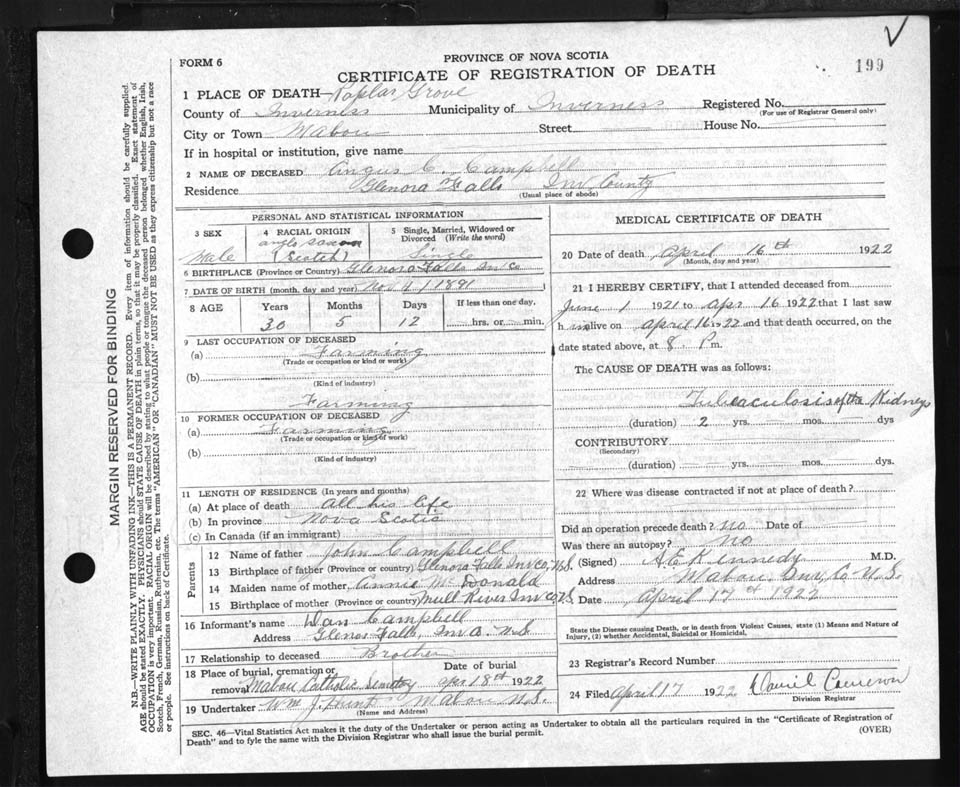 199
FORM 6
PROVINCE OF NOVA SCOTIA
CERTIFICATE OF REGISTRATION OF DEATH
1 PLACE OF DEATH—Poplar Grove
County of Inverness Municipality of Inverness Registered No.
(For use of Registrar General only)
City or Town Mabou Street House No.
If in hospital or institution, give name
2 NAME OF DECEASED Angus C. Campbell
Residence Glenora Falls Inv County
(Usual place of abode)
PERSONAL AND STATISTICAL INFORMATION
3 SEX Male
4 RACIAL ORIGIN anglo saxon (Scotch)
5 Single, Married, Widowed or Divorced (Write the word) Single
6 BIRTHPLACE (Province or Country) Glenora Falls Inv Co
7 DATE OF BIRTH (month, day and year) Nov 4 1891
8 AGE Years Months Days If less than one day.
30 5 12 hrs. or min.
9 LAST OCCUPATION OF DECEASED
(a) Farming
(Trade or occupation or kind of work)
(b)
(Kind of industry)
Farming
10 FORMER OCCUPATION OF DECEASED
(a) Farming
(Trade or occupation or kind of work)
(b)
(Kind of industry)
11 LENGTH OF RESIDENCE (In years and months)
(a) At place of death All his life
(b) In province Nova Scotia
(c) In Canada (if an immigrant)
Parents
12 Name of father John Campbell
13 Birthplace of father (Province or Country) Glenora Falls Inv Co, N.S.
14 Maiden name of mother Annie McDonald
15 Birthplace of mother (Province or Country) Mull River Inv Co N.S.
16 Informant's name Dan Campbell
Address Glenora Falls, Inv Co. N.S
17 Relationship to deceased Brother
18 Place of burial, cremation or removal Mabou Catholic Semetery Date of burial apr 18th 1922
19 Undertaker Wm J. Mabou N.S.
(Name and Address)
MEDICAL CERTIFICATE OF DEATH
20 Date of death April 16th 1922
(Month, day and year)
21 I HEREBY CERTIFY, that I attended deceased from
June 1 1921 to apr 16 1922 that I last saw
h im alive on april 16 1922 and that death occurred, on the
date stated above, at 8 P m.
The CAUSE OF DEATH was as follows:
Tuberculosis of the Kidneys
(duration) 2 yrs. mos. dys
CONTRIBUTORY
(Secondary)
(duration) yrs. mos. dys.
22 Where was disease contracted if not at place of death?
Did an operation precede death? no Date of
Was there an autopsy? no
(Signed) A E Kennedy M.D.
Address Mabou Inv, Co N.S.
Date April 17th 1922
State the Disease causing Death, or in death from Violent Causes, state (1) Means and Nature of
Injury, (2) whether Accidental, Suicidal or Homicidal.
23 Registrar's Record Number
24 Filed April 17 1922 Daniel Cameron
Division Registrar
SEC. 46—Vital Statistics Act makes it the duty of the Undertaker or person acting as Undertaker to obtain all the particulars required in the "Certificate of Registration of
Death" and to fyle the same with the Division Registrar who shall issue the burial permit.
(OVER)
MARGIN RESERVED FOR BINDING
N.B.—WRITE PLAINLY WITH UNFADING INK—THIS IS A PERMANENT RECORD. Every item of information should be carefully supplied.
AGE should be stated EXACTLY. PHYSICIANS should STATE CAUSE OF DEATH in plain terms, so that it may be properly classified. Exact statement of
OCCUPATION is very important. RACIAL ORIGIN will be described by stating to what people or tongue the deceased person belonged whether English, Irish,
Scotch, French, German, Russian, Ruthenian, etc. The terms "AMERICAN" or "CANADIAN" MUST NOT BE USED as they express citizenship but not a race
or people. See instructions on back of Certificate.